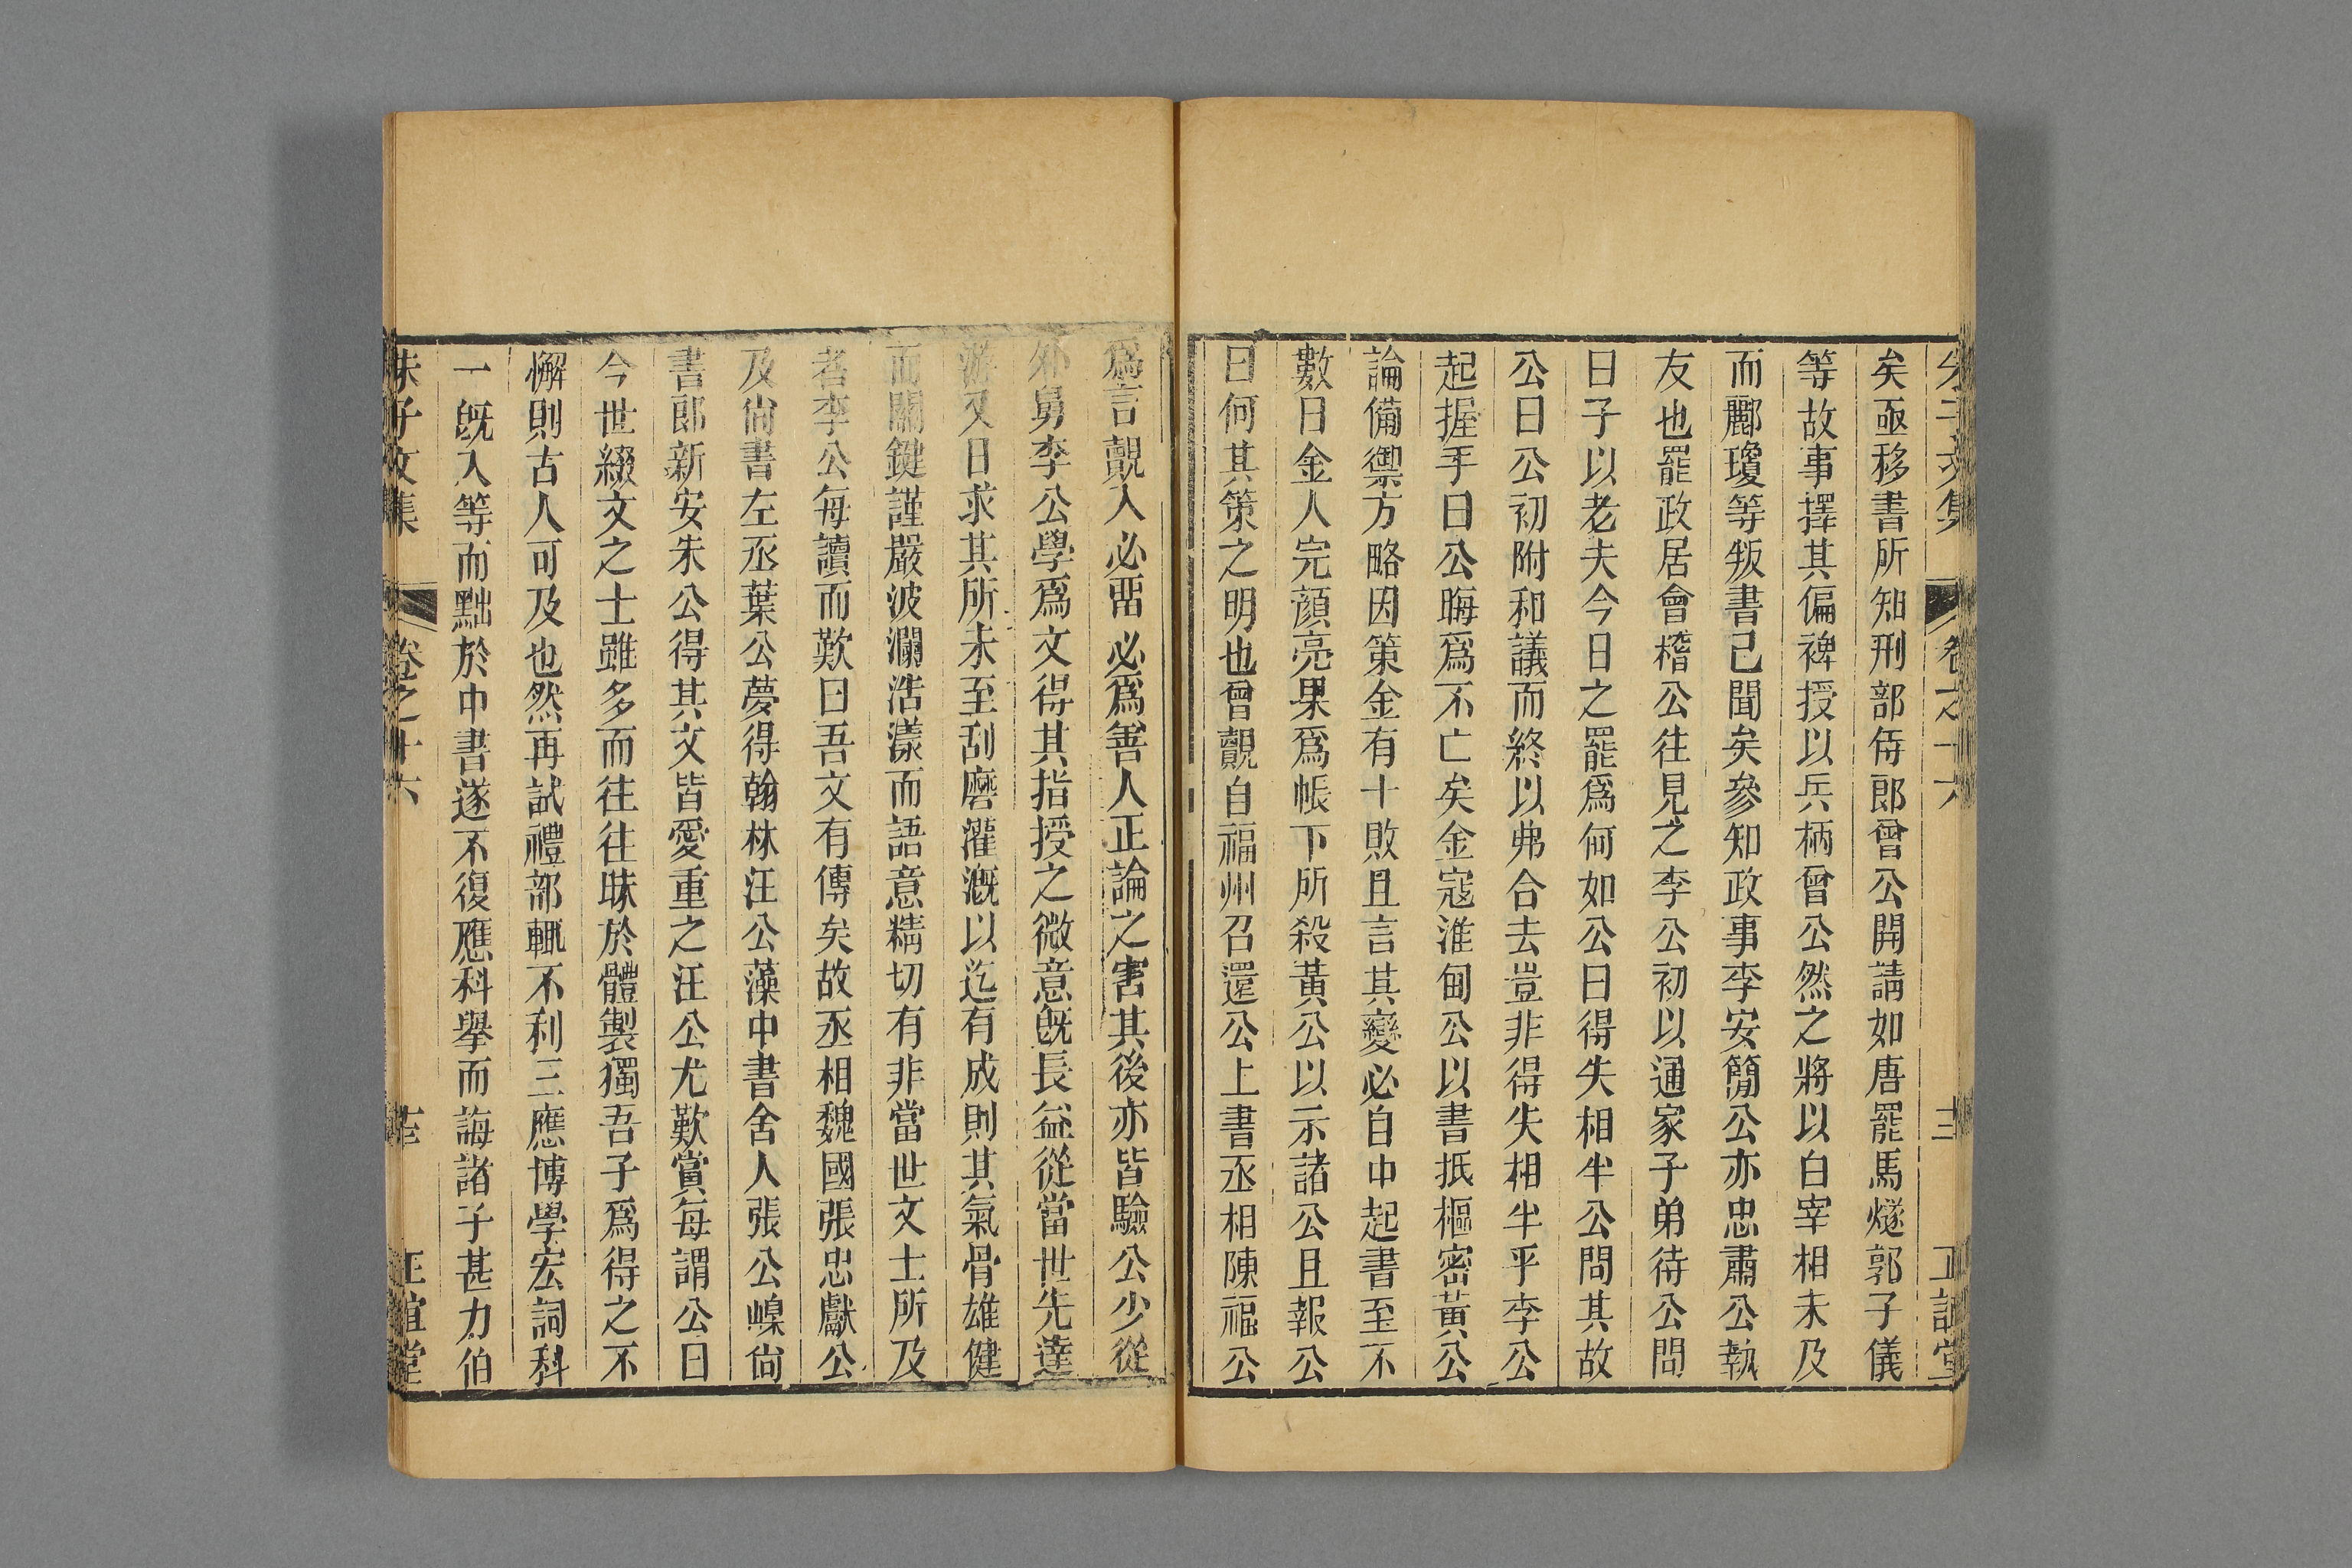 矣亟移書所知刑部侍郎曾公開請如唐罷馬燧郭子儀
等故事擇其偏裨授以兵柄曾公然之將以白宰相未及
而酈瓊等叛書已聞矣參知政事李安簡公亦忠肅公執
友也罷政居會稽公往見之李公初以通家子弟待公問
曰子以老夫今日之罷爲何如公曰得失相半公問其故
公曰公初附和議而終以弗合去豈非得失相半乎李公
起握手曰公晦爲不亡矣金寇淮甸公以書抵樞密黃公
論備禦方略因策金有十敗且言其變必自中起書至不
數日金人完顔亮果爲帳下所殺黃公以示諸公且報公
曰何其策之明也曾覿自福州召還公上書丞相陳福公
爲言覿入必畱必爲善人正論之害其後亦皆驗公少從
外舅李公學爲文得其指授之微意既長益從當世先達
游又日求其所未至刮磨灌溉以迄有成則其氣骨雄健
而關鍵謹嚴波瀾浩漾而語意精切有非當世文士所及
者李公每讀而歎曰吾文有傳矣故丞相魏國張忠獻公
及尚書左丞葉公夢得翰林汪公藻中書舍人張公嵲尚
書郎新安朱公得其文皆愛重之汪公尤歎賞每謂公曰
今世綴文之士雖多而往往昧於體製獨吾子爲得之不
懈則古人可及也然再試禮部輒不利三應博學宏詞科
一既入等而黜於中書遂不復應科擧而誨諸子甚力伯
朱子文集 卷之十六 正誼堂